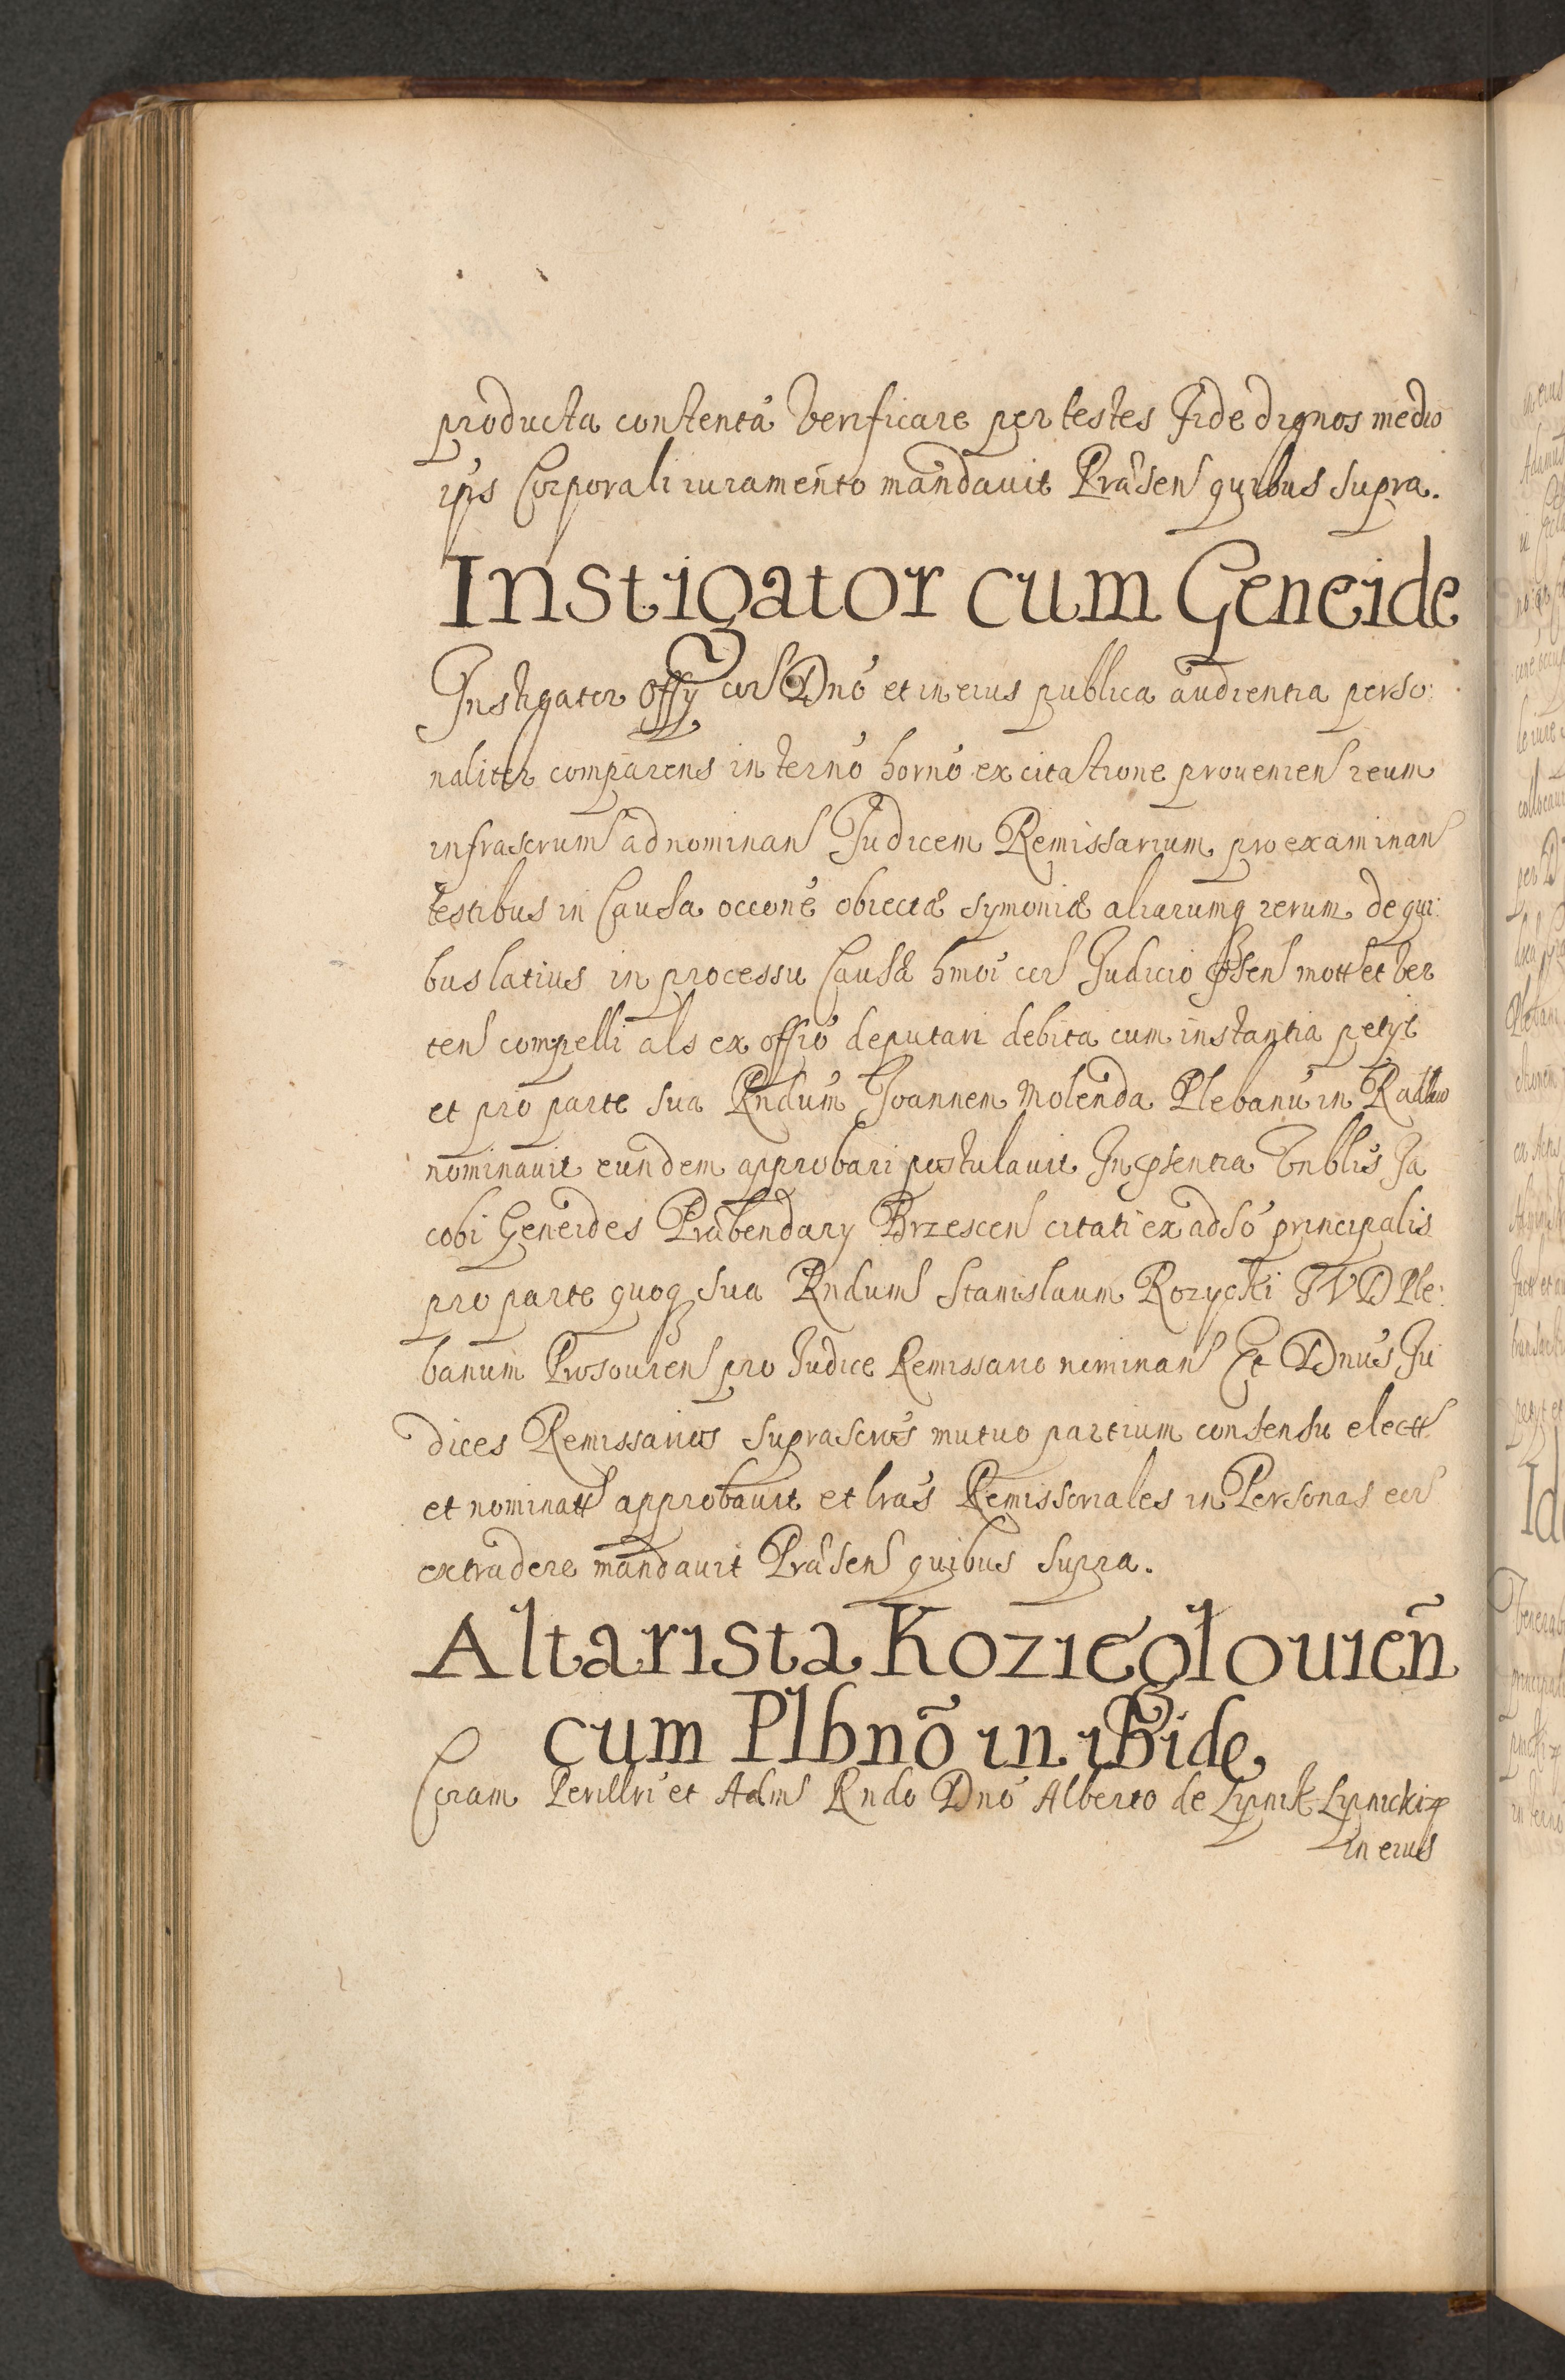 producta contenta Verificare per testes fide dignos medio
ips Corporali iuramento mandauit Præsen quibus supra.
Instigator cum Geneide
Instigator Offy cor Dno et in eius publica audientia perso:
naliter comparens in termo horno ex citatione prouenien reum
infrascrum ad nominan Judicem Remissarium pro examinan
testibus in Causa occone obiectæ symoniæ aliarumq rerum de qui:
bus latius in processu Causæ hmoi cor Judicio psen mott et ver
ten compelli als ex offio deputari debita cum instantia petyt
et pro parte sua Rndum Joannem Molenda Plebanu in
nominauit eundem approbari postulauit In psentia Vnblis Ja
cobi Geneides Præbendary Brzescen citati ex adso principalis
pro parte quoq sua Rndum Stanislaum Rozycki JVD Ple:
banum Prosouien pro Judice Remissario nominan Et Dnus Ju
dices Remissarios suprascros mutuo partium consensu elect
et nominatt approbauit et lras Remissoriales in Personas eor
extradere mandauit Præsen quibus supra.
Altarista Kozieglouień
cum Plbnō in ibide
Coram Perillri et Adm Rndo Dno Alberto de Lipnik Lipnicki
in eius